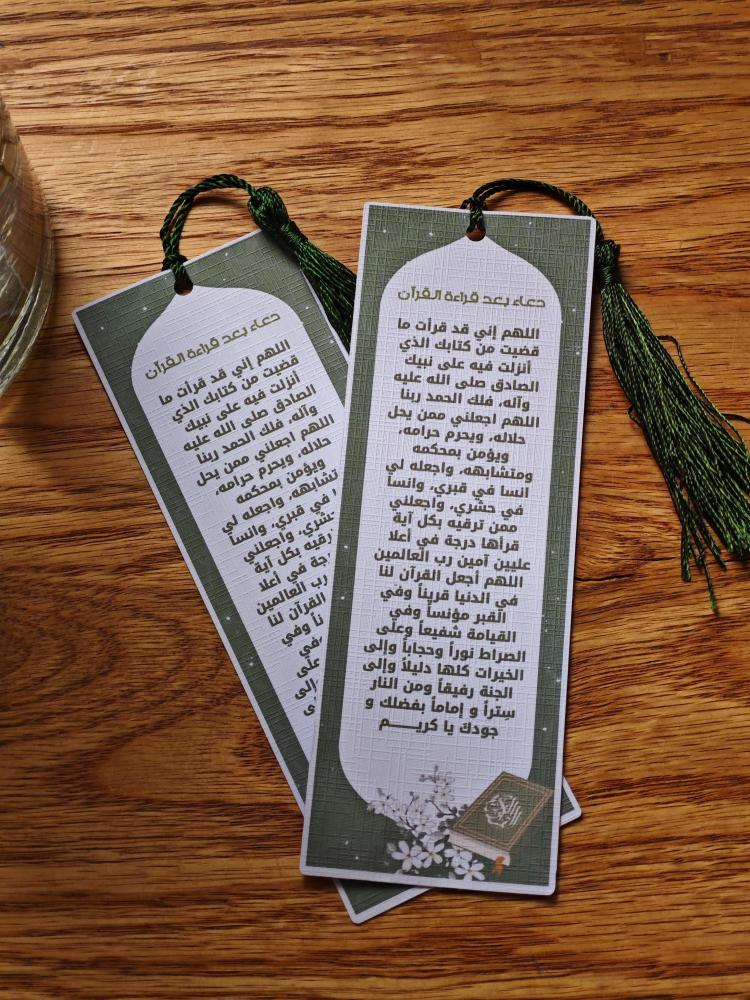 دعاء بعد قراءة القرآن
اللهم إني قد قرأت ما
قضيت من كتابك الذي
أنزلت فيه على نبيك
الصادق صلى الله عليه
وآله، فلك الحمد ربنا
اللهم اجعلني ممن يحل
حلاله، ويحرم حرامه،
ويؤمن بمحكمه
ومتشابهه، واجعله لي
انسا في قبري، وانسأ
في حشري، واجعلني
ممن ترقيه بكل آية
قرأها درجة في أعلا
عليين آمين رب العالمين
اللهم أجعل القرآن لنا
في الدنيا قريناً وفي
القبر مؤنساً وفي
القيامة شفيعاً وعلى
الصراط نوراً وحجاباً وإلى
الخيرات كلها دليلاً وإلى
الجنة رفيقاً ومن النار
ستراً و إماماً بفضلك و
جودك يا كريـــــم
دعاء بعد قراءة القرآن
اللهم إني قد قرأت ما
قضيت من كتابك الذي
أنزلت فيه على نبيك
الصادق صلى الله عليه
وآله، فلك الحمد ربنا
اللهم اجعلني ممن يحل
حلاله، ويحرم حرامه،
ويؤمن بمحكمه
تشابهه، واجعله لي
في قبري، وانسأ
شري، واجعلني
رقيه بكل آية
جة في أعلا
رب العالمين
القرآن لنا
ناً وفي
في
على
إلى